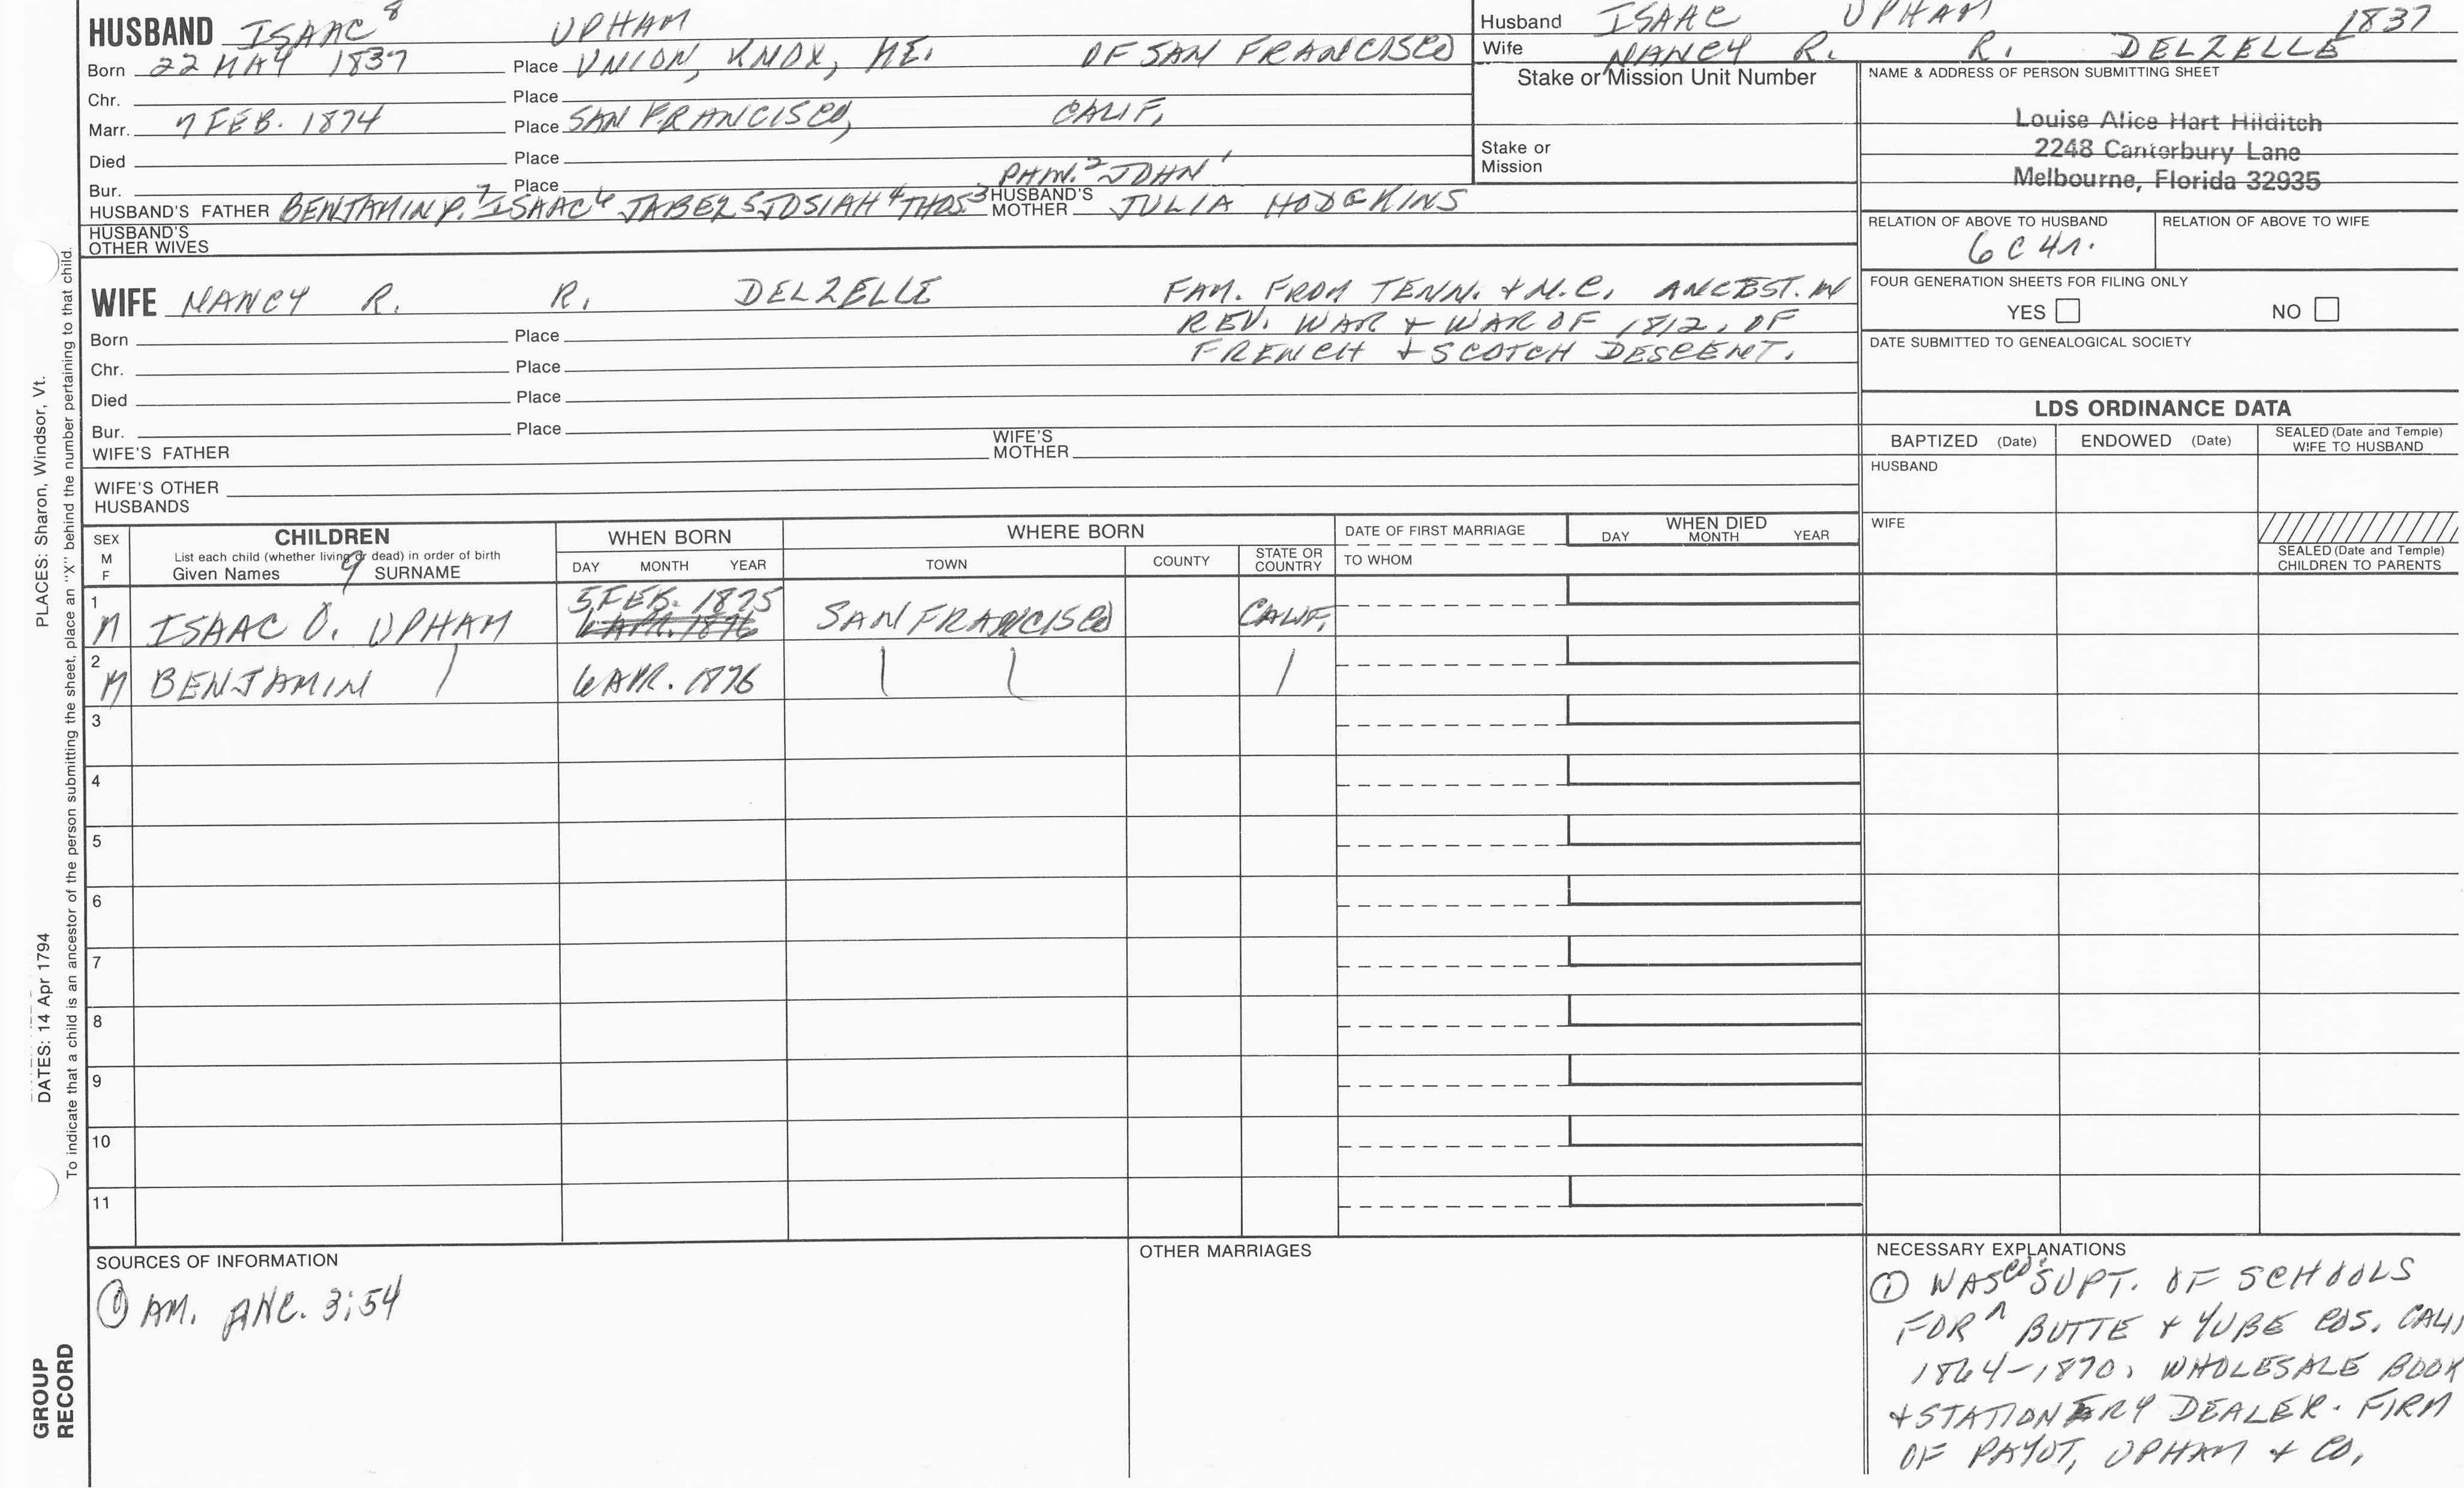 HUSBAND ISAAC 8 UPHAM
Born 22 MAY 1837 Place UNION, KNOX, ME. OF SAN FRANCISCO
Chr. Place
Marr. 7 FEB. 1874 Place SAN FRANCISCO, CALIF.
Died Place
Bur. Place PHIN.2 JOHN1
HUSBAND'S FATHER BENJAMIN P.7 ISAAC6 JABEZ5 JOSIAH4 THOS3 HUSBAND'S MOTHER JULIA HODGKINS
HUSBAND'S
OTHER WIVES
Husband ISAAC UPHAM 1837
Wife NANCY R. R. DELZELLE
Stake or Mission Unit Number
Stake or
Mission
NAME & ADDRESS OF PERSON SUBMITTING SHEET
Louise Alice Hart Hilditch
2248 Canterbury Lane
Melbourne, Florida 32935
RELATION OF ABOVE TO HUSBAND RELATION OF ABOVE TO WIFE
6 C 4r.
FOUR GENERATION SHEETS FOR FILING ONLY
YES NO
DATE SUBMITTED TO GENEALOGICAL SOCIETY
WIFE NANCY R. R. DELZELLE FAM. FROM TENN. + N.C. ANCEST. IN
REV. WAR + WAR OF 1812, OF
FRENCH + SCOTCH DESCENT.
Born Place
Chr. Place
Died Place
Bur. Place
WIFE'S FATHER WIFE'S MOTHER
WIFE'S OTHER
HUSBANDS
LDS ORDINANCE DATA
BAPTIZED (Date) ENDOWED (Date) SEALED (Date and Temple) WIFE TO HUSBAND
HUSBAND
WIFE
SEALED (Date and Temple)
CHILDREN TO PARENTS
SEX M F CHILDREN WHEN BORN WHERE BORN DATE OF FIRST MARRIAGE WHEN DIED
List each child (whether living or dead) in order of birth
Given Names SURNAME DAY MONTH YEAR TOWN COUNTY STATE OR COUNTRY TO WHOM DAY MONTH YEAR
9
1 M ISAAC O. UPHAM 5 FEB. 1875 SAN FRANCISCO CALIF.
6 APR. 1876
2 M BENJAMIN 6 APR. 1876
3
4
5
6
7
8
9
10
11
SOURCES OF INFORMATION
① AM. ANC. 3:54
OTHER MARRIAGES
NECESSARY EXPLANATIONS
① WAS CO. SUPT. OF SCHOOLS
FOR BUTTE + YUBE COS. CALI
1864-1870. WHOLESALE BOOK
+ STATIONERY DEALER. FIRM
OF PAYOT, UPHAM + CO.
PLACES: Sharon, Windsor, Vt.
DATES: 14 Apr 1794
To indicate that a child is an ancestor of the person submitting the sheet, place an "X" behind the number pertaining to that child.
GROUP
RECORD